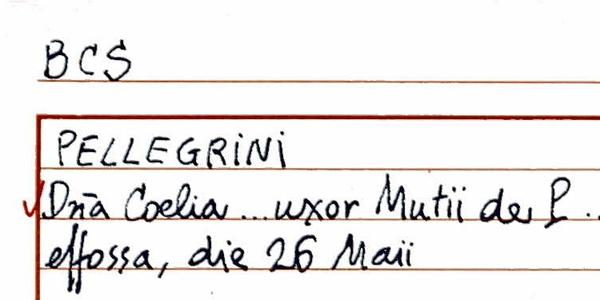 BCS
PELLEGRINI
Dn̄a Coelia ... uxor Mutii de P. ..
effossa, die 26 Maii